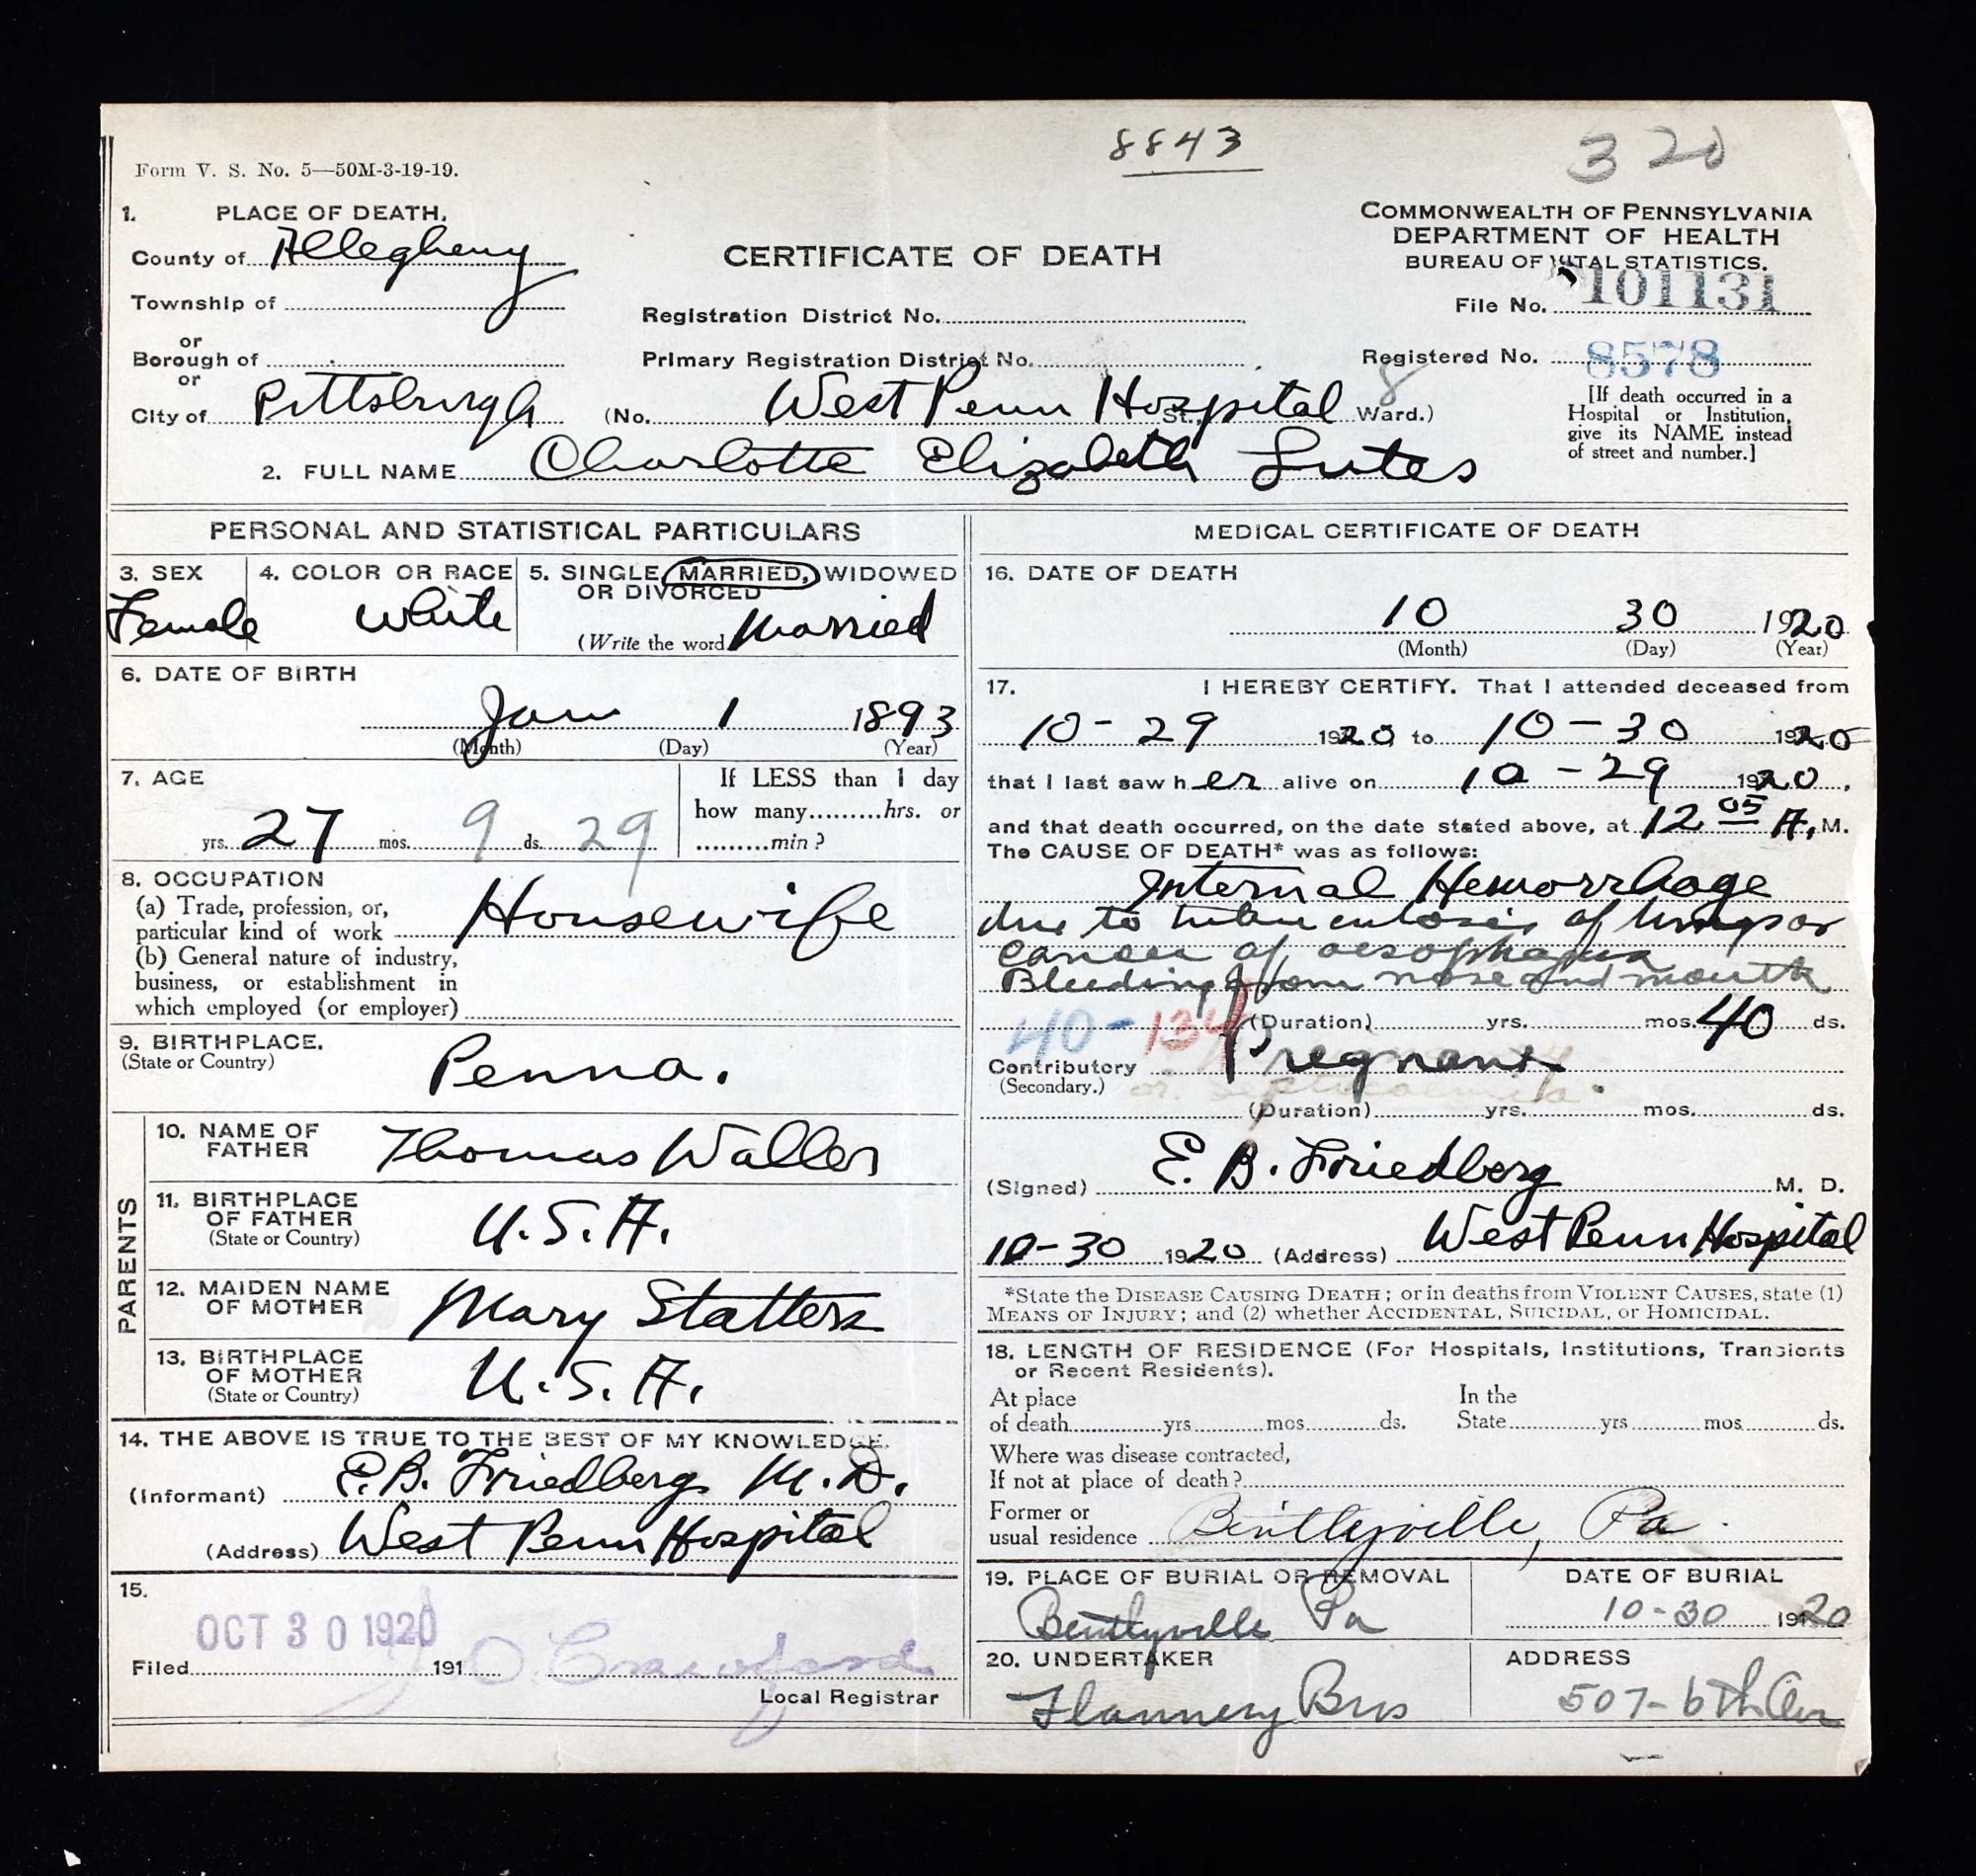 8843
320
Form V. S. No. 5—50M-3-19-19.
1. PLACE OF DEATH.
County of Allegheny
Township of
or
Borough of
or
City of Pittsburgh
CERTIFICATE OF DEATH
Registration District No.
Primary Registration District No.
(No. West Penn Hospital St., 8 Ward.)
COMMONWEALTH OF PENNSYLVANIA
DEPARTMENT OF HEALTH
BUREAU OF VITAL STATISTICS.
File No. 101131
Registered No. 8578
[If death occurred in a
Hospital or Institution,
give its NAME instead
of street and number.]
2. FULL NAME Charlotte Elizabeth Lutes
PERSONAL AND STATISTICAL PARTICULARS
3. SEX
Female
4. COLOR OR RACE
White
5. SINGLE, MARRIED, WIDOWED
OR DIVORCED
(Write the word Married
6. DATE OF BIRTH
Jan 1 1893
(Month) (Day) (Year)
7. AGE
yrs. 27 mos. 9 ds. 29
If LESS than 1 day
how many.........hrs. or
.........min?
8. OCCUPATION
(a) Trade, profession, or,
particular kind of work Housewife
(b) General nature of industry,
business, or establishment in
which employed (or employer)
9. BIRTHPLACE.
(State or Country)
Penna.
PARENTS
10. NAME OF
FATHER
Thomas Waller
11. BIRTHPLACE
OF FATHER
(State or Country)
U.S.A.
12. MAIDEN NAME
OF MOTHER
Mary Statters
13. BIRTHPLACE
OF MOTHER
(State or Country)
U.S.A.
14. THE ABOVE IS TRUE TO THE BEST OF MY KNOWLEDGE.
(Informant) E.B. Friedberg M.D.
(Address) West Penn Hospital
15.
OCT 30 1920
Filed 191 J O. Crawford
Local Registrar
MEDICAL CERTIFICATE OF DEATH
16. DATE OF DEATH
10 30 1920
(Month) (Day) (Year)
17. I HEREBY CERTIFY. That I attended deceased from
10-29 1920 to 10-30 1920
that I last saw her alive on 10-29 1920.
and that death occurred, on the date stated above, at 12 05 A. M.
The CAUSE OF DEATH* was as follows:
Internal Hemorrhage
due to tuberculosis of lungs or
cancer of aesophagus
Bleeding from nose and mouth
40-134 (Duration) yrs. mos. 40 ds.
Contributory Pregnant
(Secondary.)
(Duration) yrs. mos. ds.
(Signed) E. B. Friedberg M. D.
10-30 1920 (Address) West Penn Hospital
*State the DISEASE CAUSING DEATH; or in deaths from VIOLENT CAUSES, state (1)
MEANS OF INJURY; and (2) whether ACCIDENTAL, SUICIDAL, or HOMICIDAL.
18. LENGTH OF RESIDENCE (For Hospitals, Institutions, Transients
or Recent Residents).
At place
of death yrs mos ds.
In the
State yrs mos ds.
Where was disease contracted,
If not at place of death?
Former or
usual residence Bentlyville, Pa.
19. PLACE OF BURIAL OR REMOVAL
Bentlyville Pa
DATE OF BURIAL
10-30 1920
20. UNDERTAKER
Flannery Bros
ADDRESS
507-6th Av